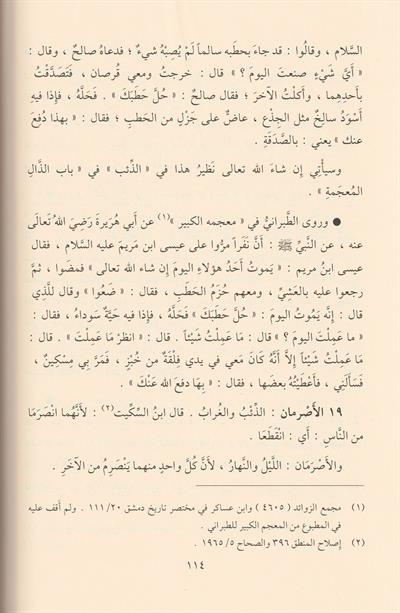 السَّلام ، وقالُوا : قد جاءَ بحطَبه سالماً لَمْ يُصِبْهُ شيءٌ ؛ فدعاهُ صالحٌ ، وقال :
« أَيَّ شَيْءٍ صنعتَ اليومَ ؟ » قال : خرجتُ ومعي قُرصان ، فَتَصَدَّقْتُ
بأحدِهِما ، وأَكلْتُ الآخرَ ؛ فقال صالحٌ : « حُلَّ حَطَبَكَ » . فَحَلَّهُ ، فإذا فيهِ
أَسْوَدُ سالِخٌ مثل الجِذْع ، عاضٌّ على جَزْلٍ من الحَطبِ ؛ فقال : « بهذا دُفِعَ
عنك » يعني : بالصَّدَقَةِ .
وسيأتِي إن شاءَ الله تعالى نَظيرُ هذا في « الذِّئب » في « باب الذَّالِ
المُعجَمةِ » .
● وروى الطَّبرانيُّ في « معجمه الكبير »(١) عن أبي هُرَيرَةَ رَضِيَ اللهُ تَعَالَى
عنه ، عن النَّبيِّ ﷺ : أَنَّ نَفَراً مرُّوا على عيسى ابن مريمَ عليه السَّلام ، فقال
عيسى ابنُ مريم : « يَموتُ أَحَدُ هؤلاءِ اليومَ إن شاء الله تعالى » فمضَوا ، ثمَّ
رجعوا عليه بالعَشِيِّ ، ومعهم حُزَمُ الحَطَبِ ، فقال : « ضَعُوا » وقال للَّذي
قال : إِنَّه يَموتُ اليومَ : « حُلَّ حَطَبَكَ » فَحَلَّهُ ، فإذا فيه حَيَّةٌ سَوداءُ ، فقال :
« ما عَمِلْتَ اليومَ ؟ » قال : مَا عَمِلْتُ شَيْئاً . قال : « انظرْ مَا عَمِلْتَ » . قال :
مَا عَمِلْتُ شَيْئاً إِلاَّ أَنَّهُ كَانَ مَعي في يدي فِلْقَةٌ من خُبْزٍ ، فمَرَّ بي مِسْكِينٌ ،
فَسَأَلَنِي ، فأَعْطَيْتُهُ بعضَها ، فقال : « بِهَا دفعَ اللهُ عَنْكَ » .
١٩ الأَصْرمان : الذِّئبُ والغُرابُ . قال ابنُ السِّكِّيت(٢) : لأَنَّهُما انْصَرَمَا
من النَّاسِ : أي : انْقَطَعَا .
والأَصْرَمَان : اللَّيْلُ والنَّهارُ ، لأَنَّ كُلَّ واحدٍ منهما يَنْصَرِمُ من الآخَرِ .
(١) مجمع الزوائد ( ٤٦٠٥ ) وابن عساكر في مختصر تاريخ دمشق ٢٠/ ١١١ . ولم أقف عليه
في المطبوع من المعجم الكبير للطبراني .
(٢) إصلاح المنطق ٣٩٦ والصحاح ٥/ ١٩٦٥ .
١١٤